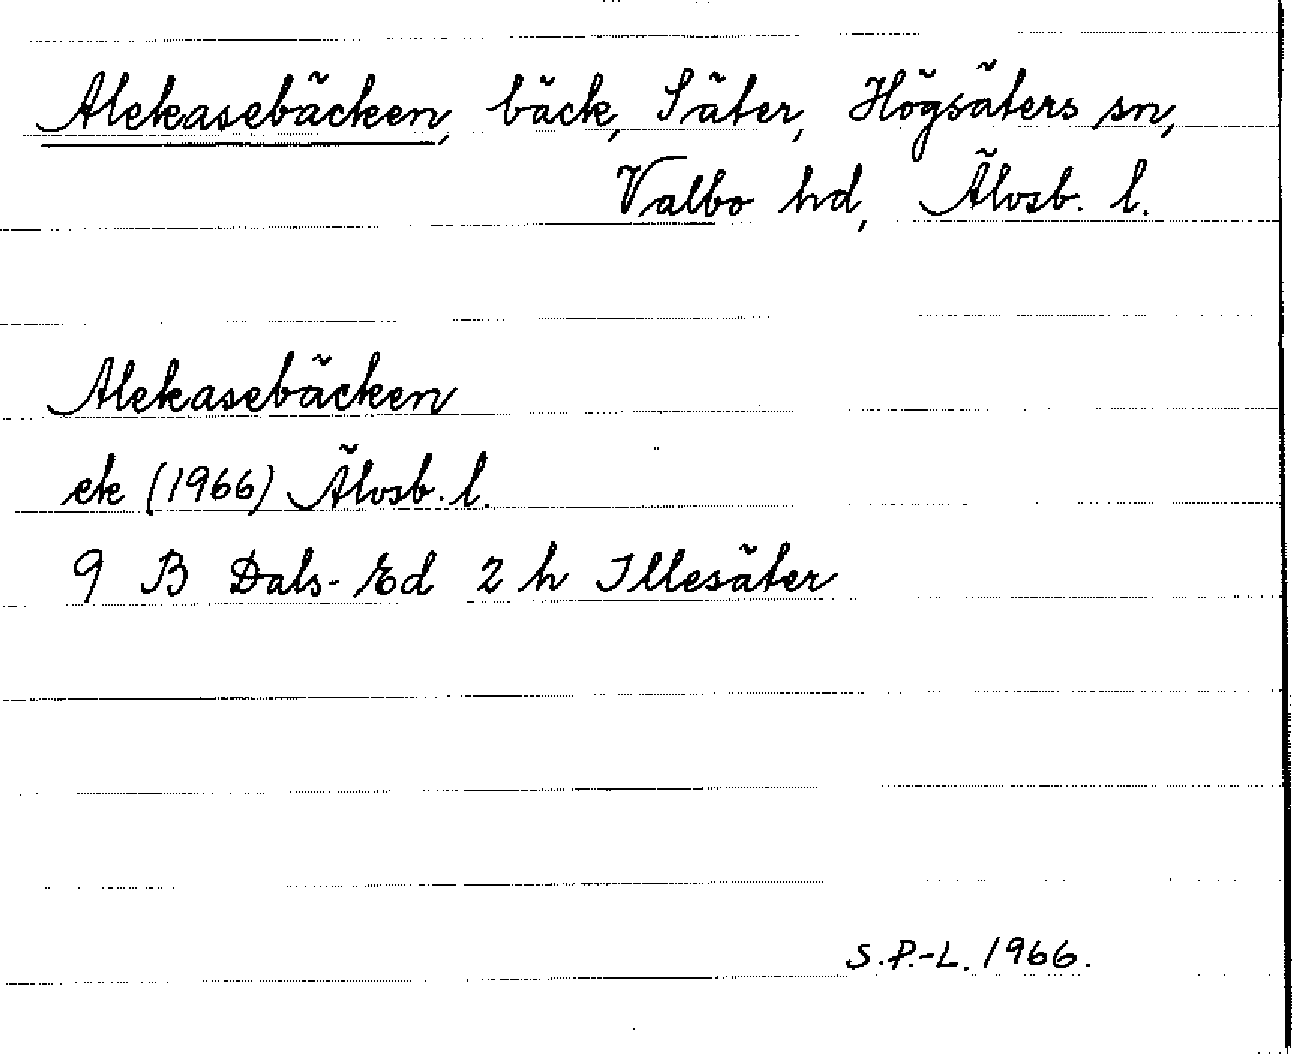 Alekasebäcken, bäck, Säter, Högsäters sn,
Valbo hd, Älvsb. l.
Alekasebäcken
ek (1966) Älvsb. l.
9 B Dals-Ed 2 h Illesäter
S.P.-L. 1966.